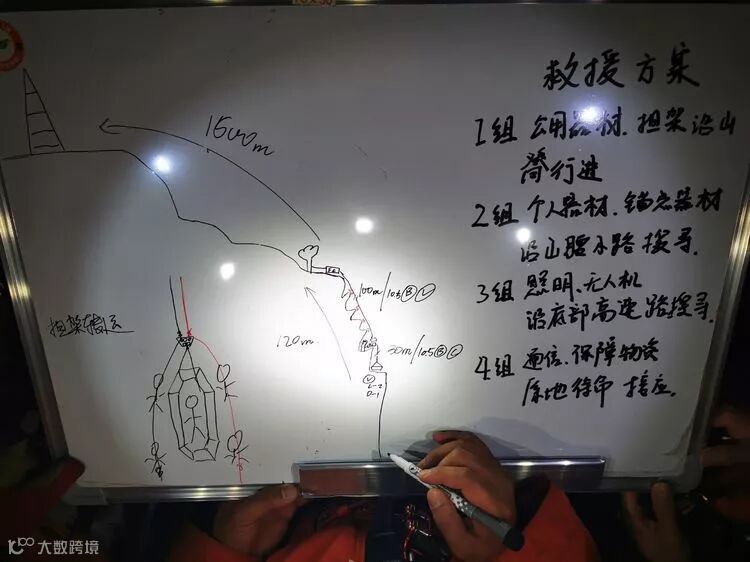 救援方案
1组 公用器材、担架沿山
脊行进
2组 个人器材、锚点器材
沿山腰小路搜寻.
3组 照明、无人机
沿底部高速路搜寻.
4组 通信、保障物资
原地待命 接应.
1500m
100m/10.5 B C
120m
30m/10.5 B C
担架转运
大数跨境